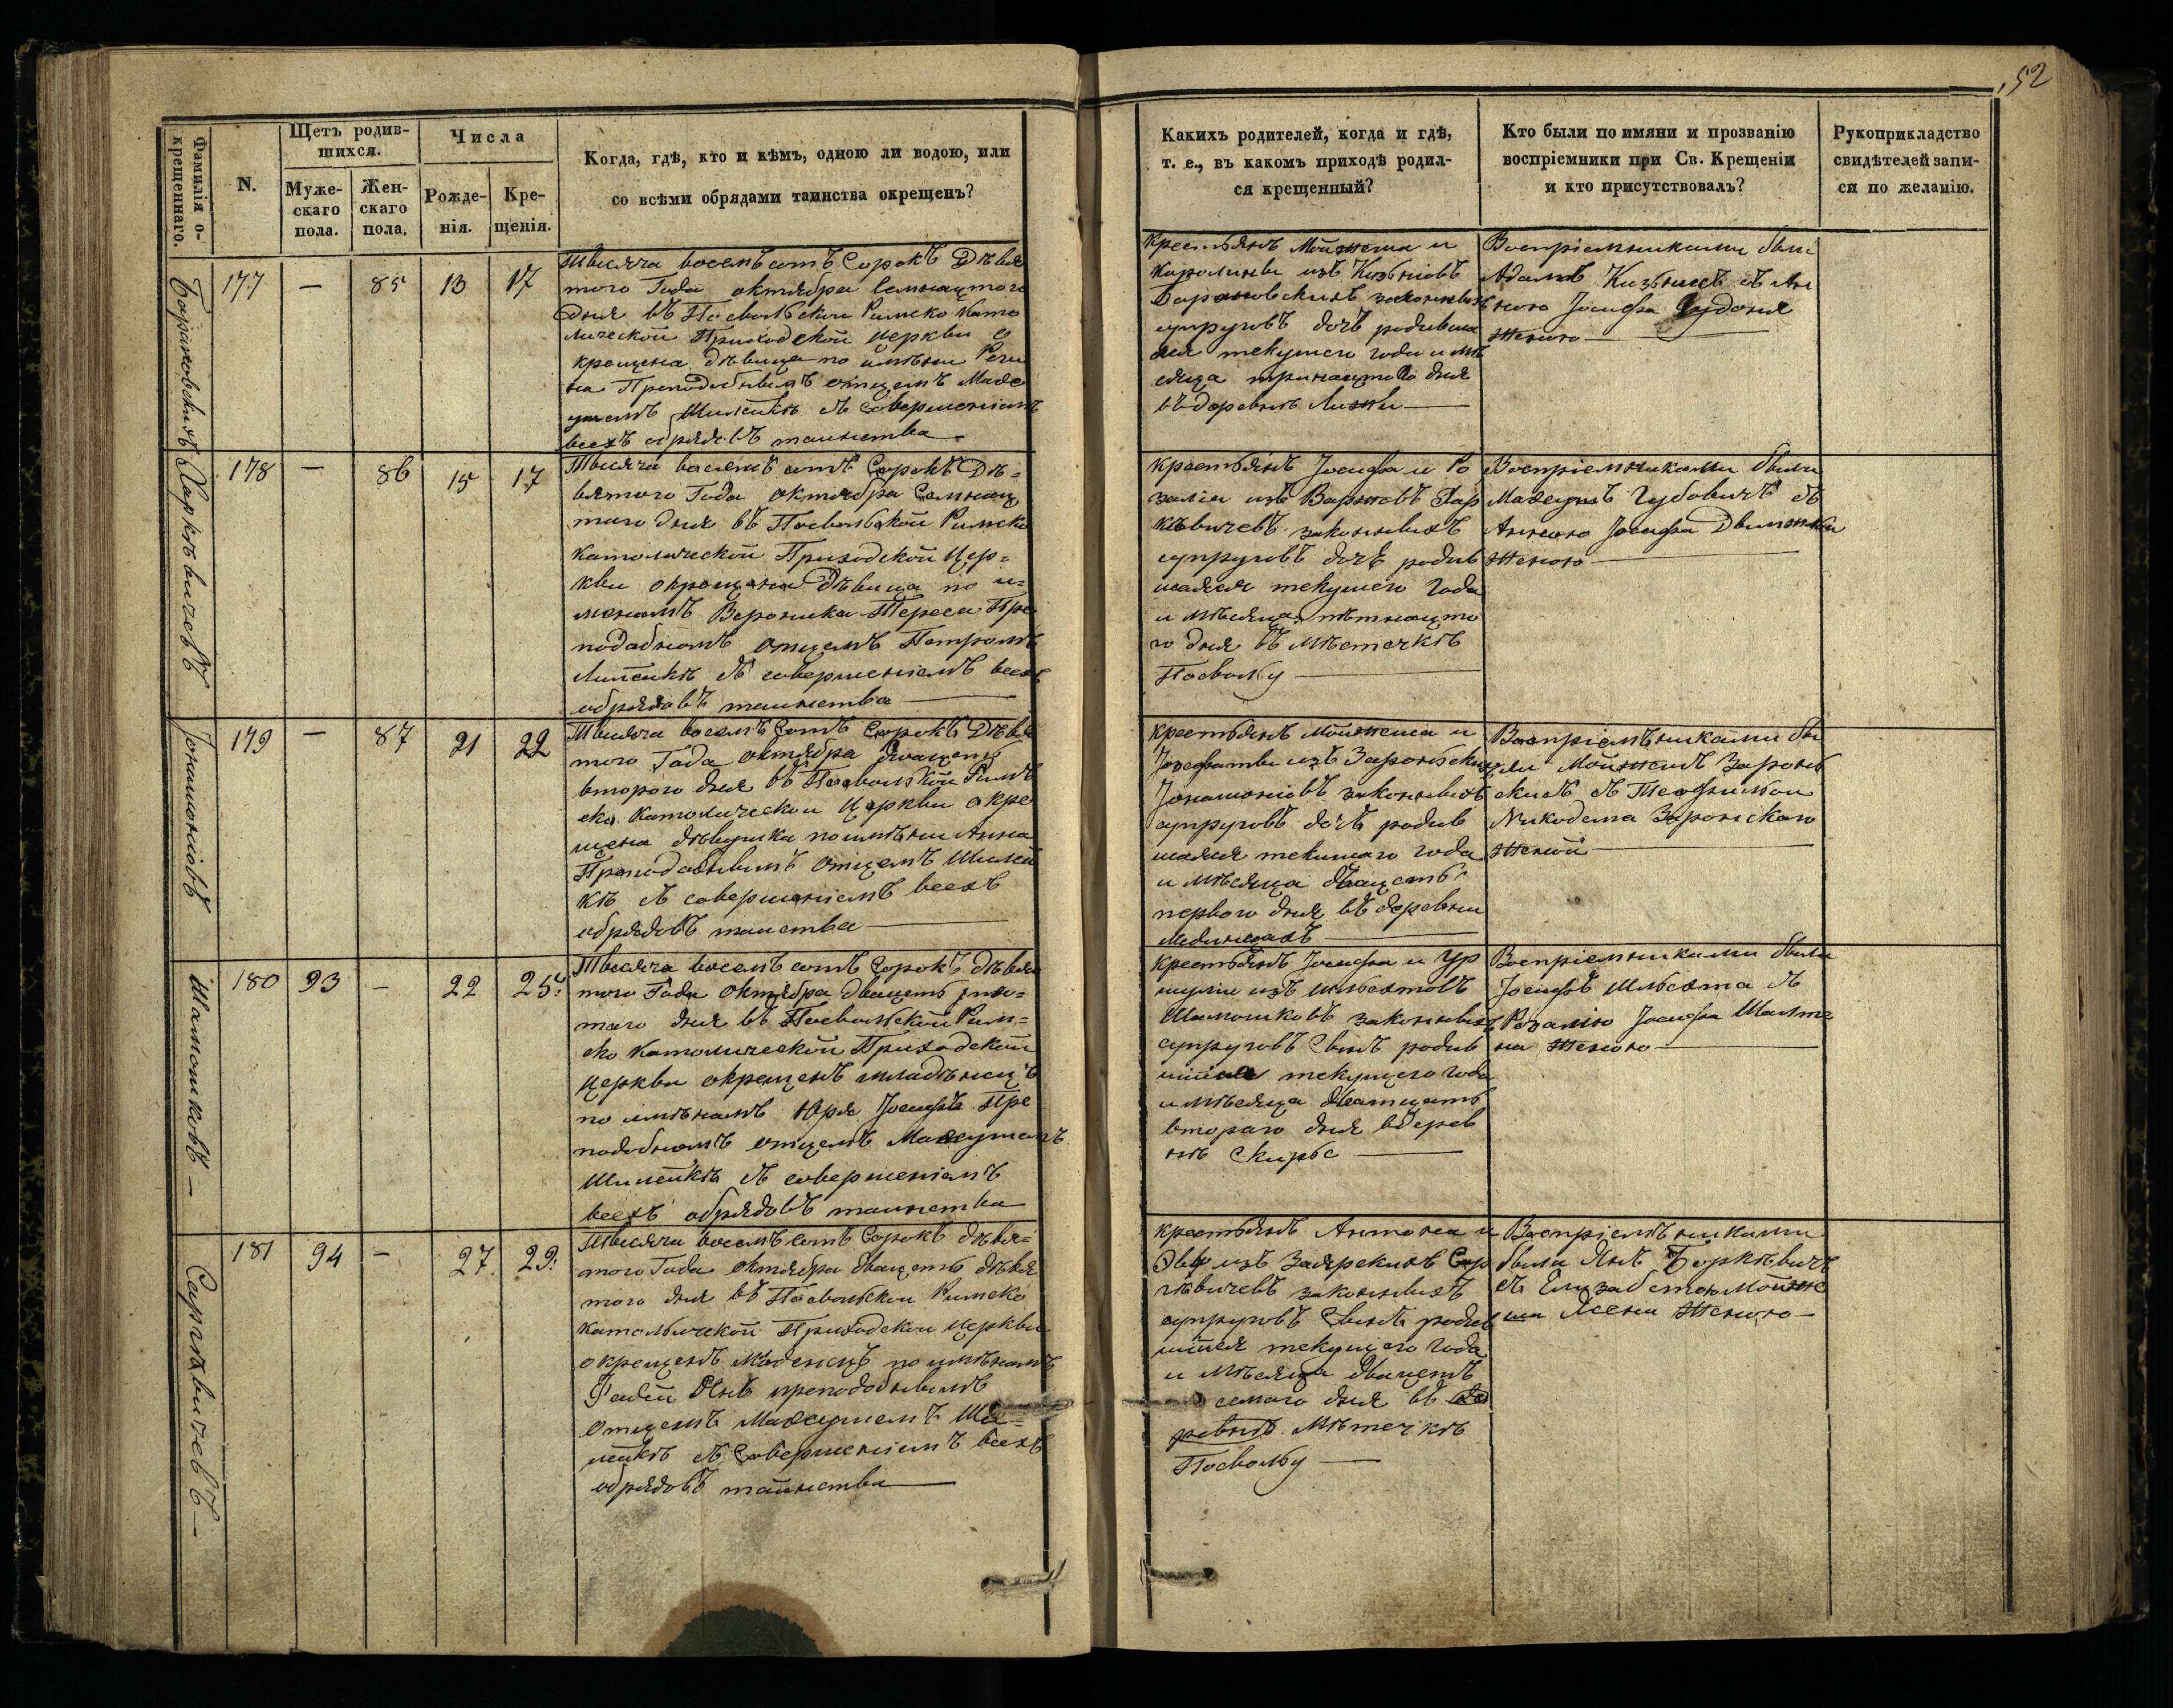 52
Фамилія о-
крещеннаго.
N.
Щетъ родив-
шихся.
Муже-
скаго
пола.
Жен-
скаго
пола.
Числа
Рожде-
нія.
Кре-
щенія.
Когда, гдѣ, кто и кѣмъ, одною ли водою, или
со всѣми обрядами таинства окрещенъ?
Какихъ родителей, когда и гдѣ,
т. е., въ какомъ приходѣ родил-
ся крещенный?
Кто были по имяни и прозванію
воспріемники при Св. Крещеніи
и кто присутствовалъ?
Рукоприкладство
свидѣтелей запи-
си по желанію.
Барановскихъ
177 — 85 13 17
Тысяча восемъ сотъ Сорокъ Девя
того Года октября семнацтого
дня въ Посвольской Римско Като
лической Приходской церкви о
крещена дѣвица по имѣни Реги
на Преподобнымъ отцемъ Маѳе
ушемъ Шилейкѣ съ Совершеніемъ
всехъ обрядовъ таинства
крестьянъ Мойжеша и
Каролины изъ
Барановскихъ законныхъ
супруговъ дочь родивша
яся текущего года и мѣ
сяца тринацтого дня
въ деревнѣ
Воспріемниками были
Адамъ съ Ан
ною Іосифа
женою —
Харкѣвичевъ
178 — 86 15 17
Тысяча восемъ сотъ Сорокъ Дѣ=
вятого Года октября Семнац
того дня въ Посвольской Римско
католической Приходской Цер=
кви окрещена Дѣвица по и=
менамъ Вероника Тереса Пре
подобномъ отцемъ Петромъ
съ совершеніемъ всехъ
обрядовъ таинства —
крестьянъ Іосифа и Ро
заліи изъ Хар
кѣвичевъ законныхъ
супруговъ дочь родив
шаяся текущего года
и мѣсяца пѣтнацто
го дня въ мѣстечкѣ
Посволѣ —
Воспріемниками были
Маѳеушъ Губовичъ съ
Анною Іосифа
женою —
Іонашоніовъ
179 — 87 21 22
Тысяча восемъ Сотъ Сорокъ Дѣвя
того Года октября Двацеть
второго дня въ Посвольской Римъ
ско Католической Церкви окре
щена дѣвушка по имѣни Анна
Преподобнымъ отцемъ Шилей
кѣ съ совершеніемъ всехъ
обрядовъ таиства —
крестьянъ Мойжеша и
Іозефаты изъ
Іонашоніовъ законныхъ
супруговъ дочь родив
шаяся текущаго года
и мѣсяца двацеть
первого дня въ деревни
Воспріемъниками бы
ли Мойжешъ Заронь
скисъ съ Теофилѣей
Никодема Заронскаго
женой —
Шамошковъ —
180 93 — 22 25.
Тысяча восемъ сотъ Сорокъ дѣвя
того Года Октября двацеть пя=
того дня въ Посвольской Рим=
ско католической Приходской
церкви окрещенъ младѣнецъ
по имѣнамъ Юря Іосифъ Пре
подобномъ отцемъ Маѳеушемъ
Шилейкѣ съ совершеніемъ
всехъ обрядовъ таинства
крестьянъ Іосифа и Ур
шули изъ
Шамошковъ законныхъ
супруговъ Сынъ родив
шійся текущего года
и мѣсяца Дватцать
второго дня въ Дерев
нѣ
Воспріемниками были
Іосифъ съ
Розаліею Іосифа
на женою —
Саргѣвичевъ —
181 94 — 27. 29.
Тысяча восемъ сотъ Сорокъ дѣвя=
того Года октября двацеть дѣвя
того дня въ Посвольской Римско
католической Приходской церкви
окрещенъ Младенецъ по имѣнамъ
преподобнымъ
отцемъ Маѳеушемъ Ши=
лейкѣ съ Совершеніемъ всехъ
обрядовъ таинства —
крестьянъ Антона и
Эвы изъ Сар
гѣвичевъ законныхъ
супруговъ Сынъ родив
шійся текущего года
и мѣсяца двацеть
семого дня въ де
ревнѣ Мѣстечкѣ
Посволѣ —
Воспріемъниками
были Янъ Боркѣвичъ
съ Елизабетою Мойже
ша женою —